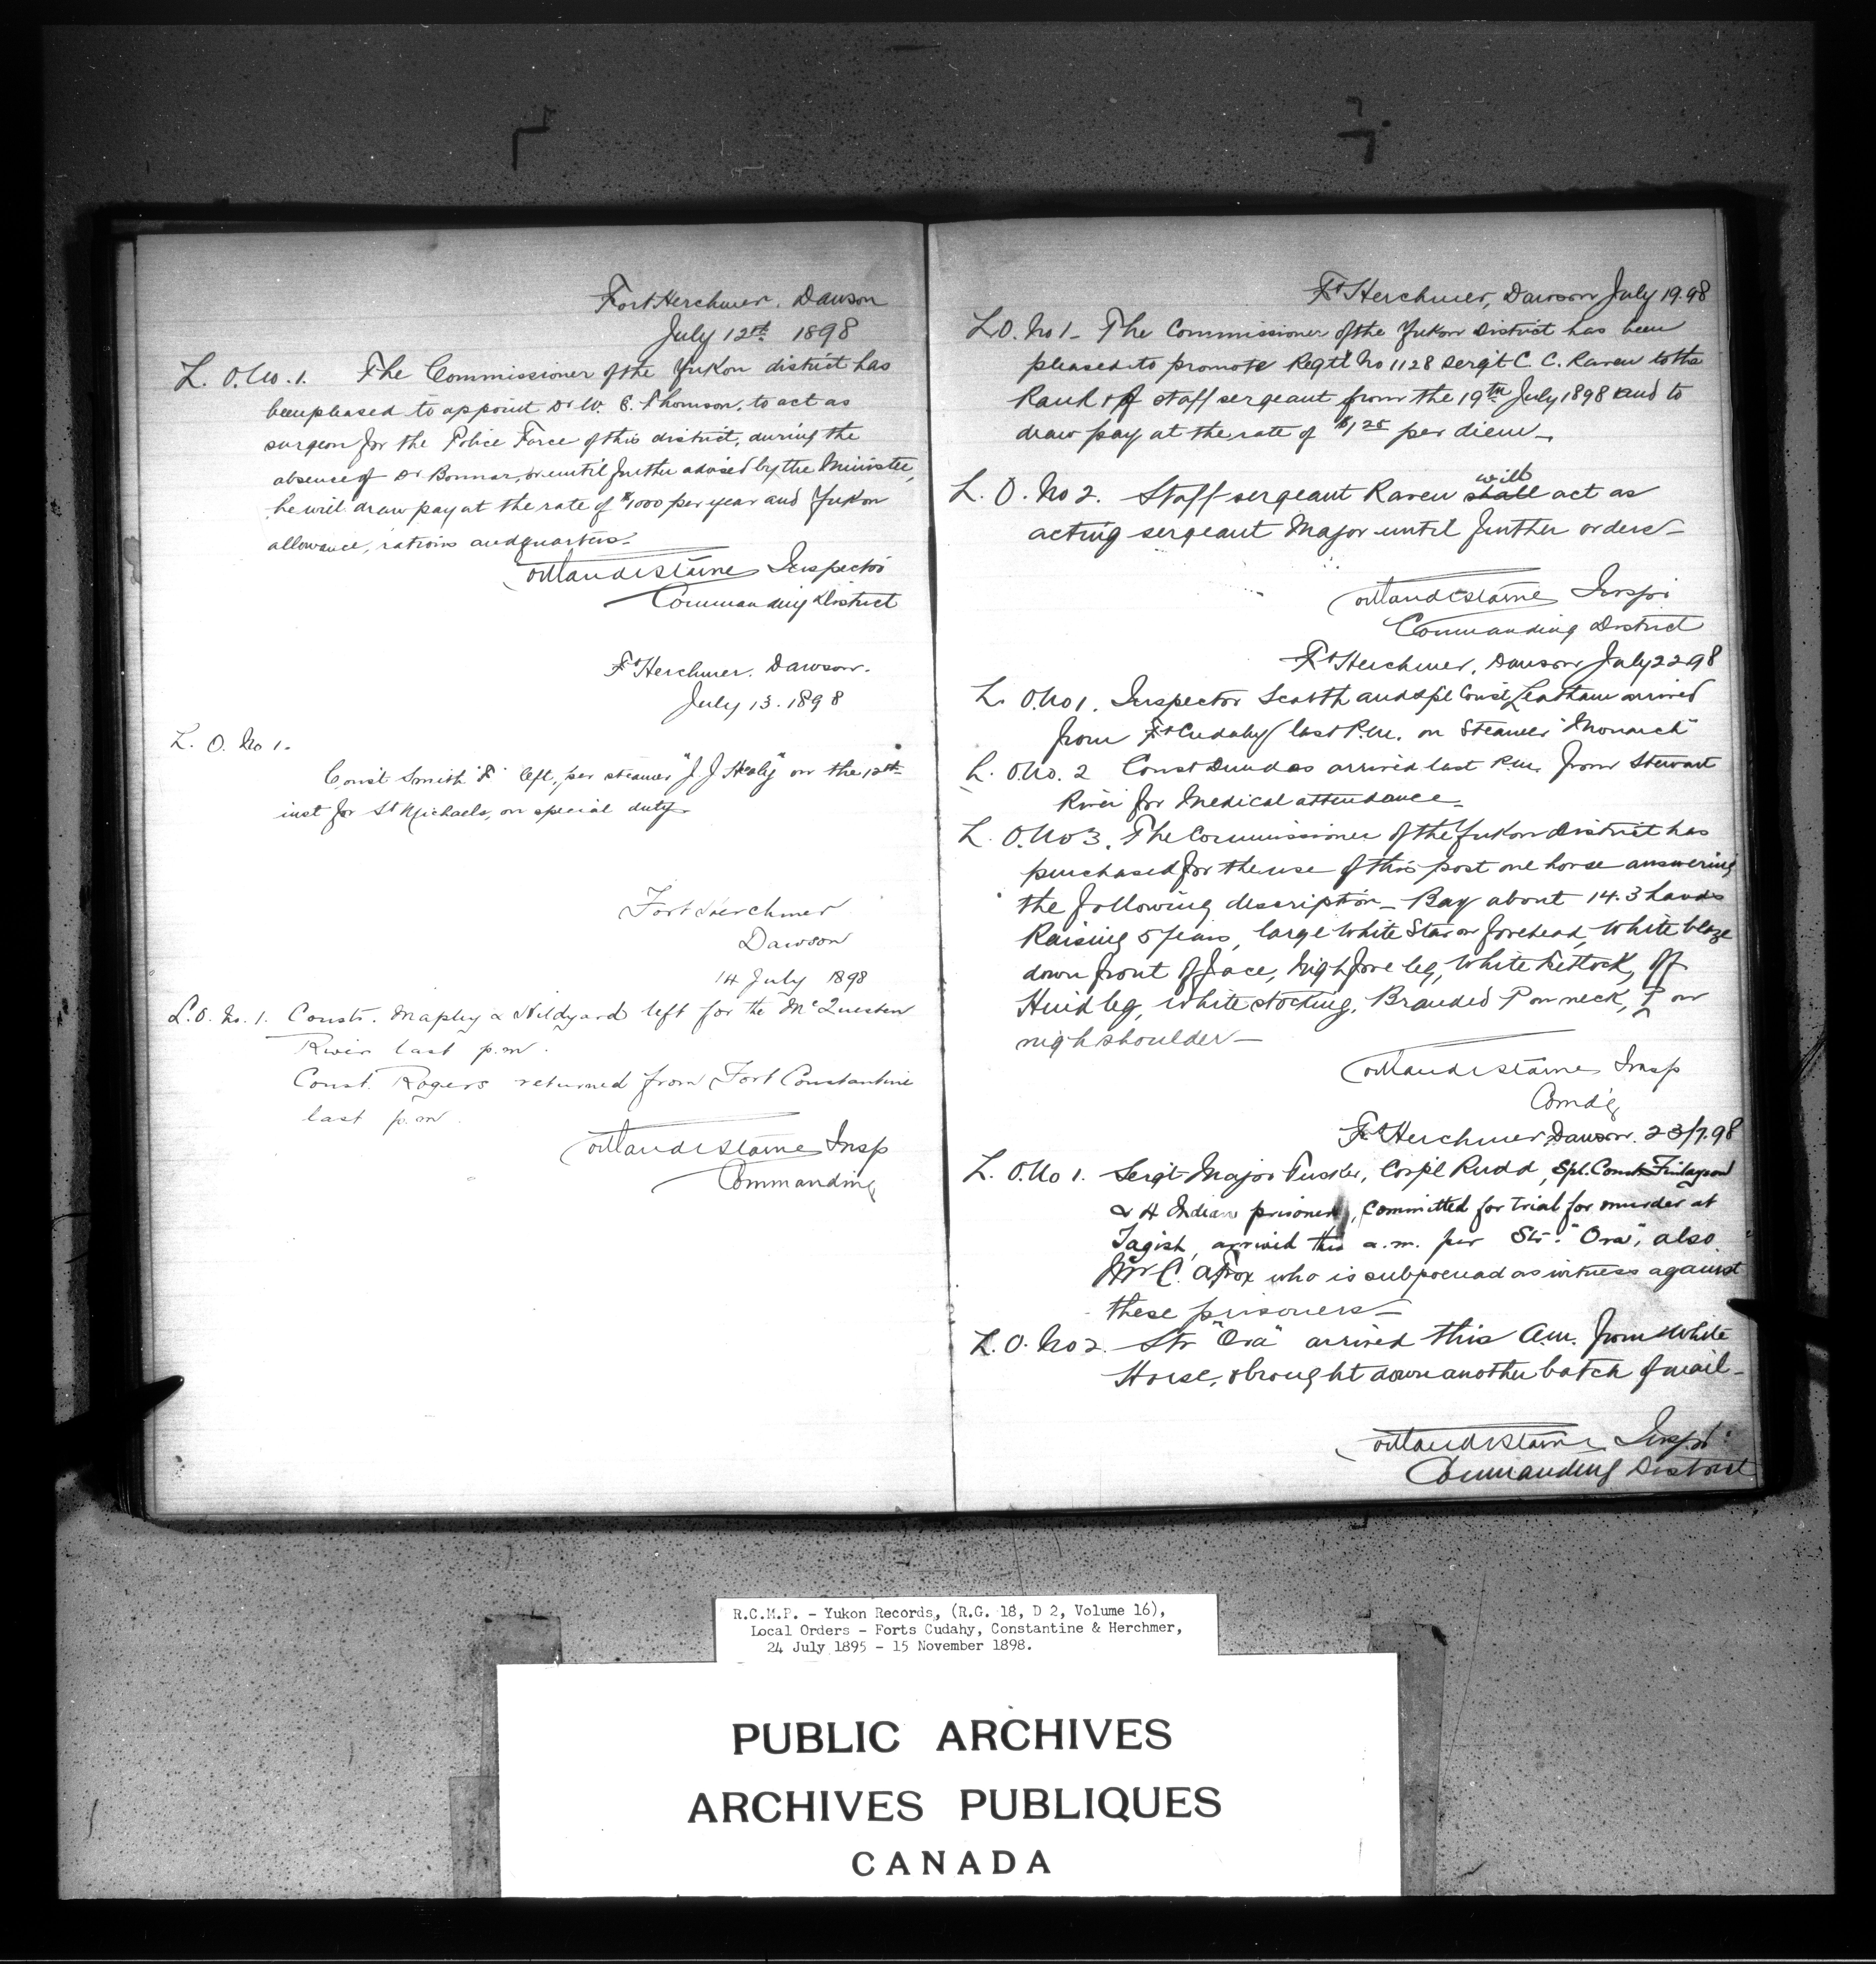 Fort Herchmer. Dawson
July 12th 1898
L. O. No. 1. The Commissioner of the Yukon district has
been pleased to appoint Dr W. E. Thomson, to act as
surgeon for the Police Force of this district, during the
absence of Dr Bonnar, or until further advised by the Minister,
he will draw pay at the rate of $1000 per year and Yukon
allowance, rations and quarters.
Starne Inspector
Commanding District
Ft Herchmer. Dawson.
July 13. 1898
L. O. No 1.
Const Smith "F" left, per steamer "J J Healy" on the 12th
inst for St Michaels, on special duty.
Fort Herchmer
Dawson
14 July 1898
L. O. No. 1. Consts. Mapley & Hildyard left for the McQuesten
River last p.m.
Const. Rogers returned from Fort Constantine
last p.m.
Starne Insp
Commanding
Ft Herchmer, Dawson July 19.98
L.O. No 1 - The Commissioner of the Yukon District has been
pleased to promote Regt'l No 1128 Sergt C. C. Raven to the
Rank of staff sergeant from the 19th July 1898 and to
draw pay at the rate of $1.25 per diem -
will
L. O. No 2. Staff sergeant Raven shall act as
acting sergeant Major until further orders -
Starne Inspr
Commanding District
Ft Herchmer, Dawson July 22 98
L. O. No 1. Inspector Scarth and Spl Const Leatham arrived
from Ft Cudahy last P.M. on Steamer "Monarch"
L. O. No. 2 Const Dundas arrived last P.M. from Stewart
River for Medical attendance.
L. O. No 3. The Commissioner of the Yukon District has
purchased for the use of this post one horse answering
the following description - Bay about 14.3 hands
Raising 5 years, large white Star on forehead, white blaze
down front of face, nigh fore leg, white fetlock, off
Hind leg, white stocking. Branded P on neck, P on
nigh shoulder -
Starne Insp
Comdg
Ft Herchmer Dawson. 23/7.98
L. O. No 1. Sergt Major Tucker, Corpl Rudd, Spl. Const Finlayson
& 4 Indian prisoners, committed for trial for murder at
Tagish, arrived this a.m. per Str. "Ora", also
Mr C. A Fox who is subpoenad as witness against
these prisoners -
L. O. No 2. Str "Ora" arrived this A.M. from White
Horse, & brought down another batch of mail -
Starne Inspr
Commanding District
R.C.M.P. - Yukon Records, (R.G. 18, D 2, Volume 16),
Local Orders - Forts Cudahy, Constantine & Herchmer,
24 July 1895 - 15 November 1898.
PUBLIC ARCHIVES
ARCHIVES PUBLIQUES
CANADA